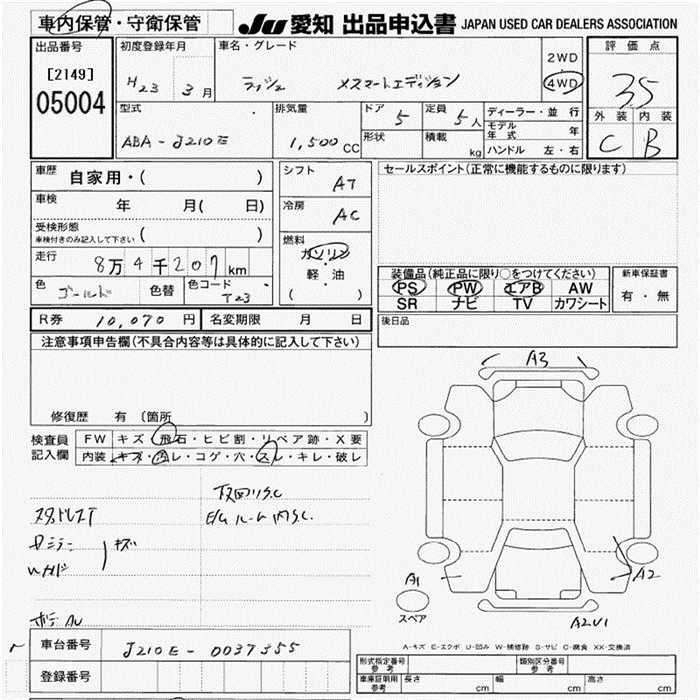 車内保管・守衛保管
JU 愛知 出品申込書 JAPAN USED CAR DEALERS ASSOCIATION
出品番号
[2149]
05004
初度登録年月
H23 3月
車名・グレード
ラッシュ
2WD
4WD
評価点
3.5
外装 内装
C B
型式
ABA-J210E
排気量
1,500cc
ドア 5
定員 5人
形状
積載 kg
ディーラー・並行
モデル年式 年
ハンドル 左・右
車歴
自家用・( )
車検 年 月( 日)
受検形態
車検付きのみ記入して下さい ( )
走行
8万4千207km
色
ゴールド
色替
色コード
T23
シフト
AT
冷房
AC
燃料
ガソリン
・
軽油
( )
セールスポイント(正常に機能するものに限ります)
装備品(純正品に限り○をつけてください)
PS PW エアB AW
SR ナビ TV カワシート
新車保証書
有・無
R券 10,070円 名変期限 月 日
後日品
注意事項申告欄(不具合内容等は具体的に記入して下さい)
修復歴 有(箇所 )
検査員
記入欄
FW キズ・飛石・ヒビ割・リペア跡・X要
内装 キズ・汚レ・コゲ・穴・スレ・キレ・破レ
キズ
A3
A1
A2
A2U1
スペア
A-キズ E-エクボ U-凹み W-補修跡 S-サビ C-腐食 XX-交換済
車台番号 J210E-0037355
登録番号
形式指定番号
参考
類別区分番号
参考
車庫証明用
参考
長さ cm 幅 cm 高さ cm